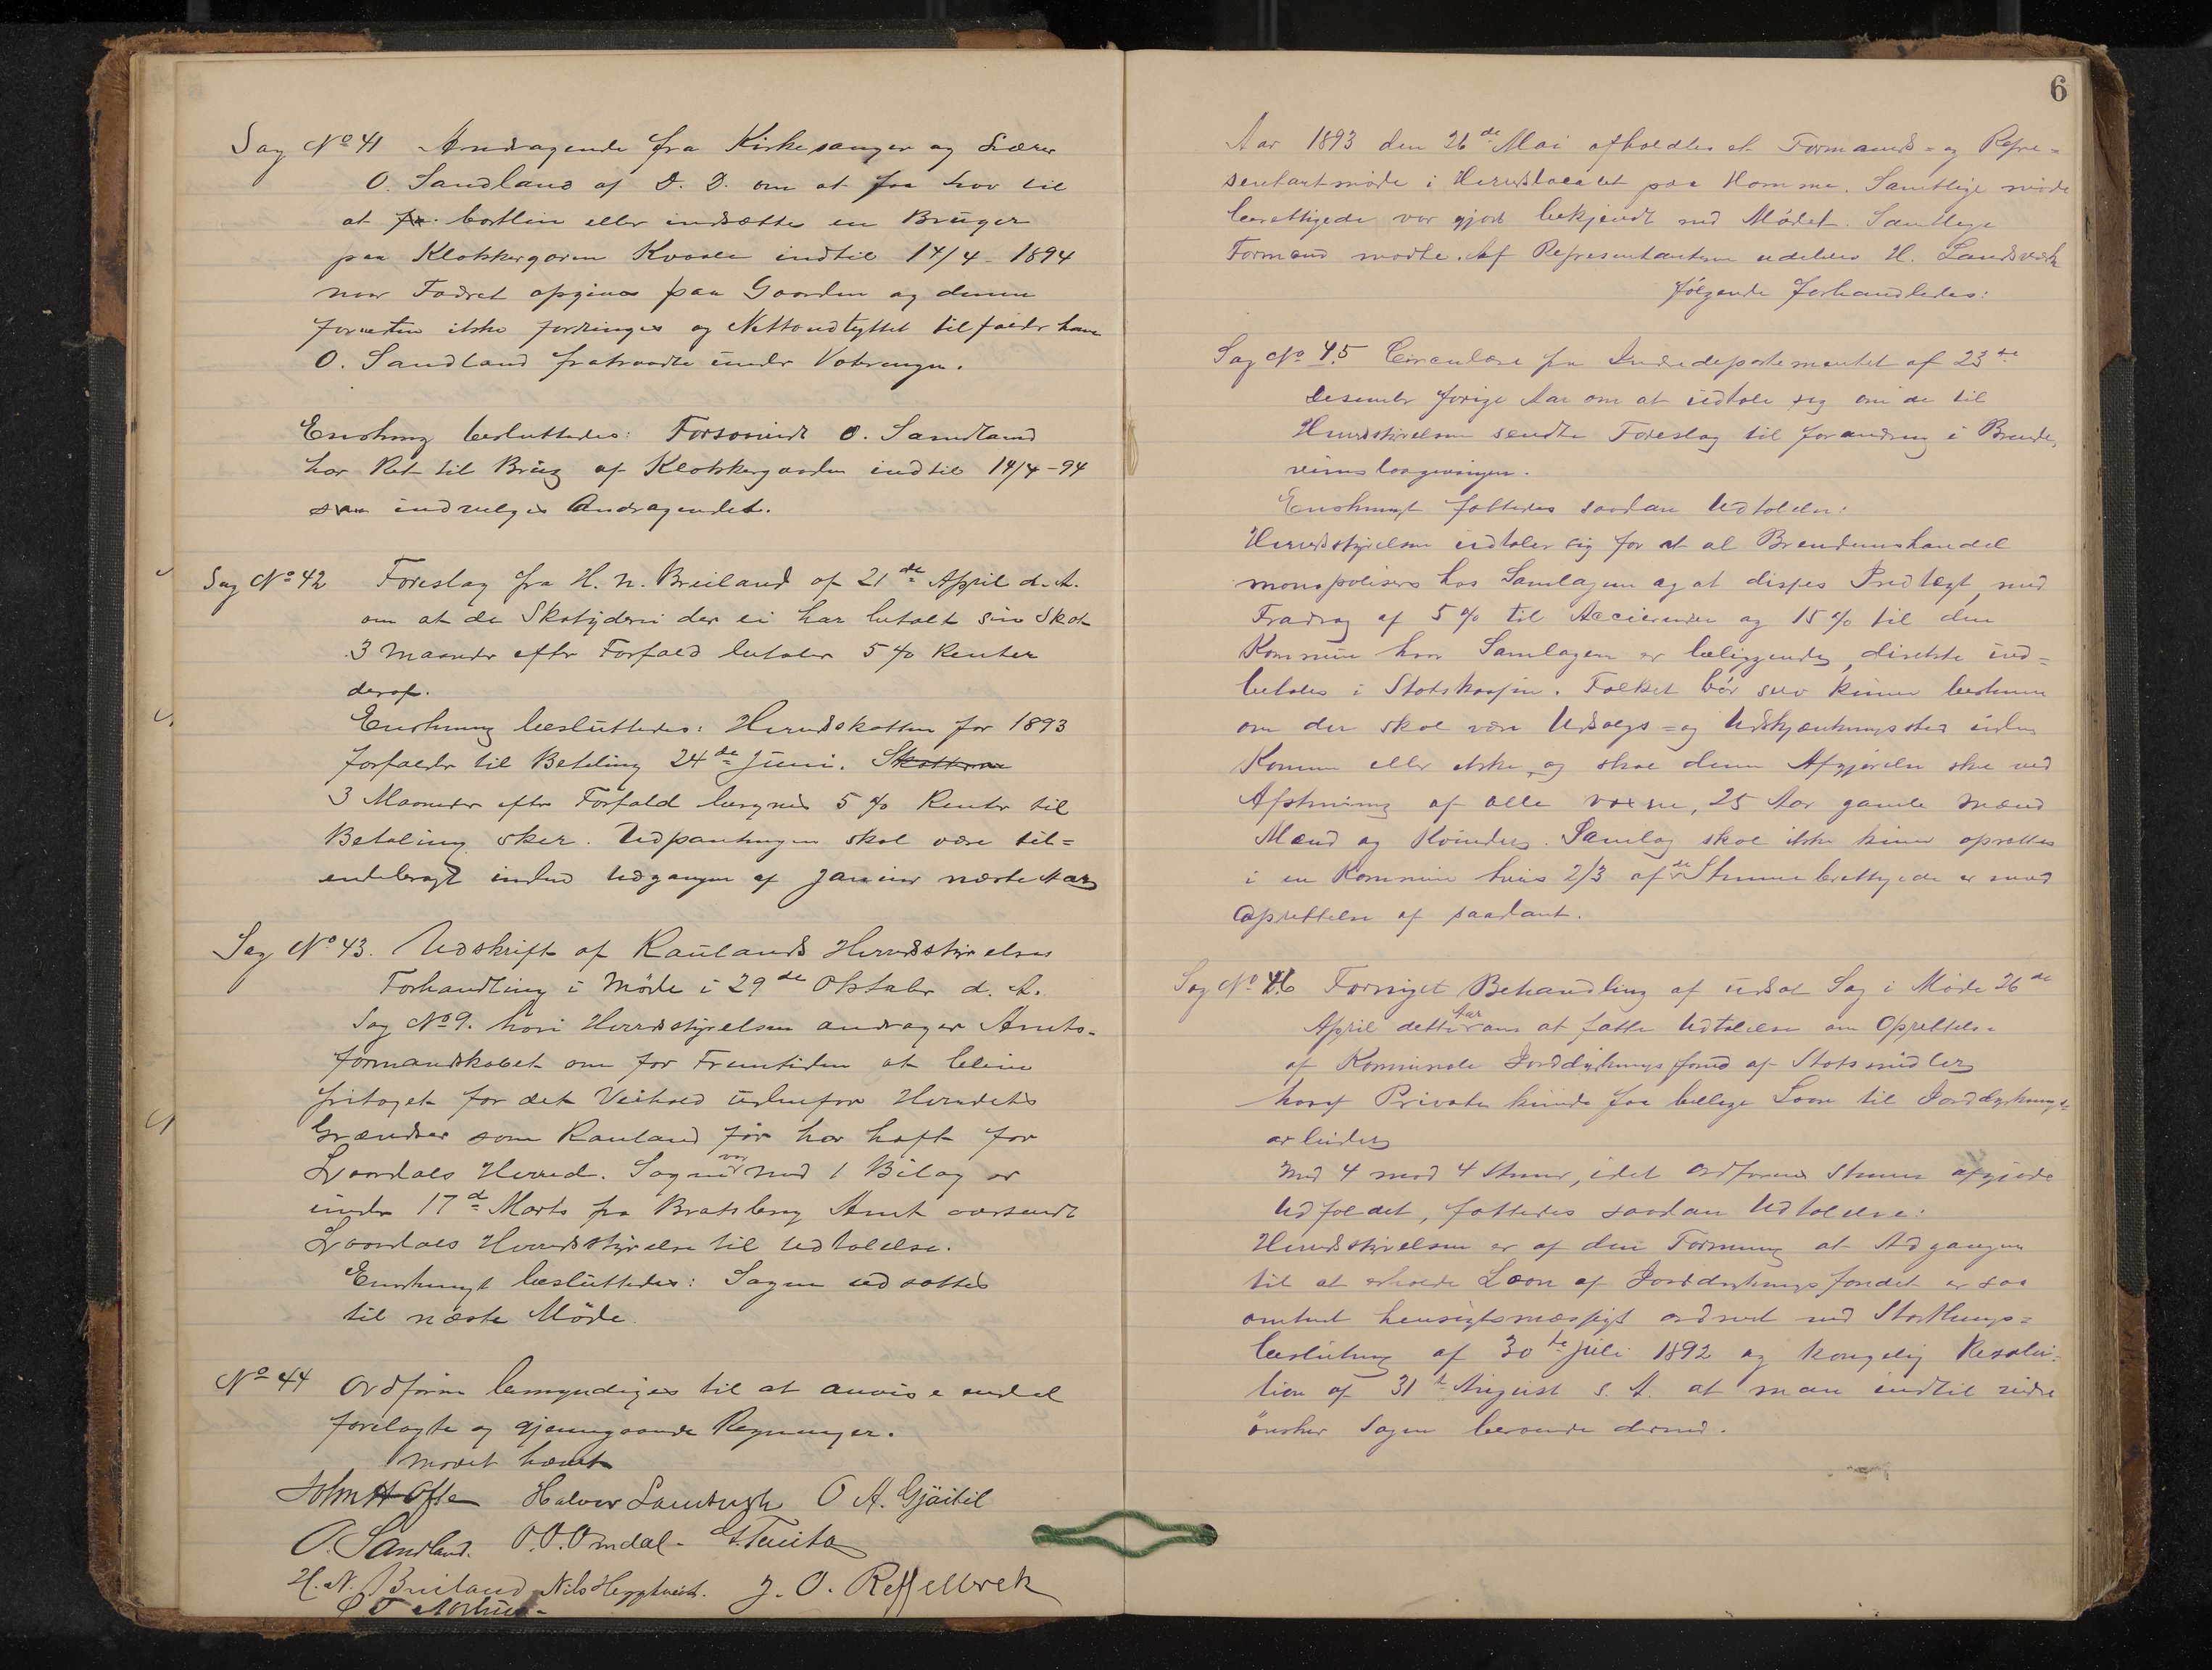 Sag No 41 Andragende fra Kirkesanger og Lærer
O. Sandland af D. D. om at faa Lov til
at bortleie eller indsætte en Bruger
paa Klokkergaren Kvaale indtil 14/4 - 1894
naar Fodret opgives paa Gaarden og denne
forresten ikke forringes og Nettoudbyttet tilfalder ham
O. Sandland fratraadte under Voteringen.
Enstemig besluttedes: Forsaavidt O. Sandland
har Ret til Brug af Klokkergaarden indtil 14/4-94
saa indvilges Andragendet.
Sag No 42 Foreslag fra H. N. Breiland af 21de April d. A.
om at de Skatydere der ei har betalt sin Skat
3 Maaneder efter Forfald betaler 5 % Renter
deraf.
Enstemig besluttedes: Herredskatten for 1893
forfalder til Betaling 24de Juni. Skatterne
3 Maaneder efter Forfald beregnes 5 % Renter til
Betaling sker. Udpantningen skal være til=
endebragt inden Udgangen af Januar næste Aar
Sag No 43. Udskrift af Raulands Herredsstyrelses
Forhandling i Møde i 29de Oktober d. A.
Sag No 9. hvori Herredsstyrelsen andrager Amts-
formandskabet om for Fremtiden at blive
fritaget for det Veihold udenfor Herredets
Grændser som Rauland før har haft for
Laardals Herred. Sagen med 1 Bilag er
under 17de Marts fra Bratsberg Amt oversendt
Laardals Herredsstyrelse til Udtalelse.
Enstemigt besluttedes: Sagen udsættes
til næste Møde.
No 44 Ordføren bemyndiges til at anvise endel
forelagte og gjennemgaaende Regninger.
Mødet hævet
John H Ofte Halvor Landsverk O A. Gjøitil
O. Sandland. O. O. Omdal. G. Tveito
H. N. Breiland Nils Heggtveit. J. O. Reffellvek
6
Aar 1893 den 26de Mai afholdtes et Formands= og Repre=
sentantmøde i Herredslocalet paa Homme. Samtlige møde
berettigede var gjort bekjendt med Mødet. Samtlige
Formænd mødte. Af Representanterne udeblev H. Landsverk
følgende forhandledes:
Sag No 45 Circulære fra Indredepartementet af 23de
Desember forige Aar om at udtale sig om de til
Herredsstyrelsen sendte Foreslag til forandring i Brænde-
viinslovgivningen.
Enstemigt fattedes saadan Udtalelse:
Herredsstyrelsen udtaler sig for at al Brendevinshandel
monopoliseres hos Samlagene og at disses Indtægt, med
Fradrag af 5 % til Accierender og 15 % til den
Kommune hvor Samlagene er beliggende, direkte ind=
betales i Statskassen. Folket bør selv kunne bestemme
om der skal være Udsalgs= og Udskjænkningssted inden
Kommunen eller ikke, og skal denne Afgjørelse ske ved
Afstemning af alle voxne, 25 Aar gamle Mænd
Mænd og Kvinder. Samlag skal ikke kunne oprettes
i en Kommune hvis 2/3 af de Stemmeberettigede er mod
Oprettelse af saadant.
Sag No 46 Fornyet Behandling af udsat Sag i Møde 26de
April dette Aar om at fatte Udtalelse om Oprettelse
af Kommunale Jorddyrkningsfond af Statsmidler
hvoraf Private kunde faa billige Laan til Jorddyrknings-
arbeider
Med 4 mod 4 Stemmer, idet Ordførerens Stemme afgjorde
Udfaldet, fattedes saadan Udtalelse:
Herredsstyrelsen er af den Formening at Adgangen
til at erholde Laan af Jorddyrkningsfondet er saa
omtrent hensigtsmæssigt ordnet ved Storthings=
beslutning af 30te Juli 1892 og kongelig Resolu-
tion af 31te August s. A. at man indtil videre
ønsker Sagen beroende dermed.